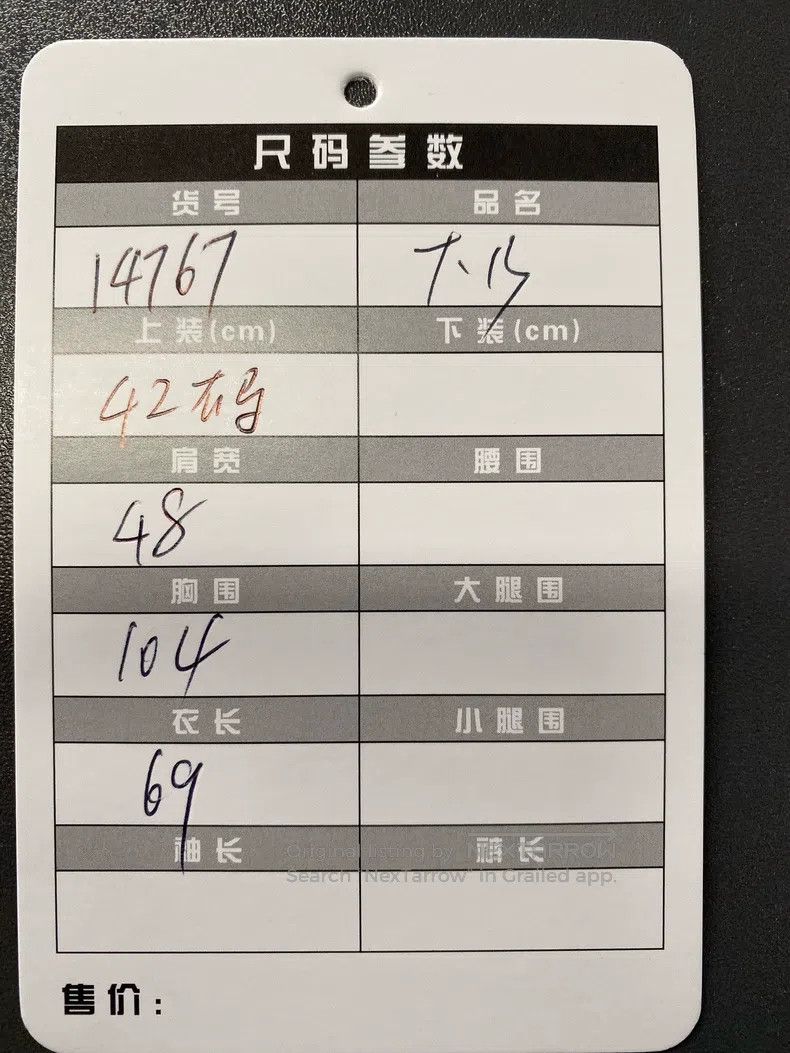 尺码参数
货号 品名
14767
上装(cm) 下装(cm)
42标码
肩宽 腰围
48
胸围 大腿围
104
衣长 小腿围
69
袖长 裤长
Original listing by NEXTARROW
Search "NexTarrow" in Grailed app.
售价: